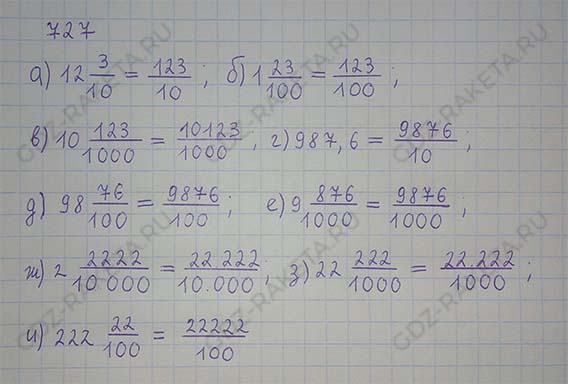 727
а) 12 3/10 = 123/10 ; б) 1 23/100 = 123/100 ;
в) 10 123/1000 = 10123/1000 ; г) 987,6 = 9876/10 ;
д) 98 76/100 = 9876/100 ; е) 9 876/1000 = 9876/1000 ;
ж) 2 2222/10.000 = 22.222/10.000 ; з) 22 222/1000 = 22.222/1000 ;
и) 222 22/100 = 22222/100
GDZ-RAKETA.RU
GDZ-RAKETA.RU
GDZ-RAKETA.RU
GDZ-RAKETA.RU